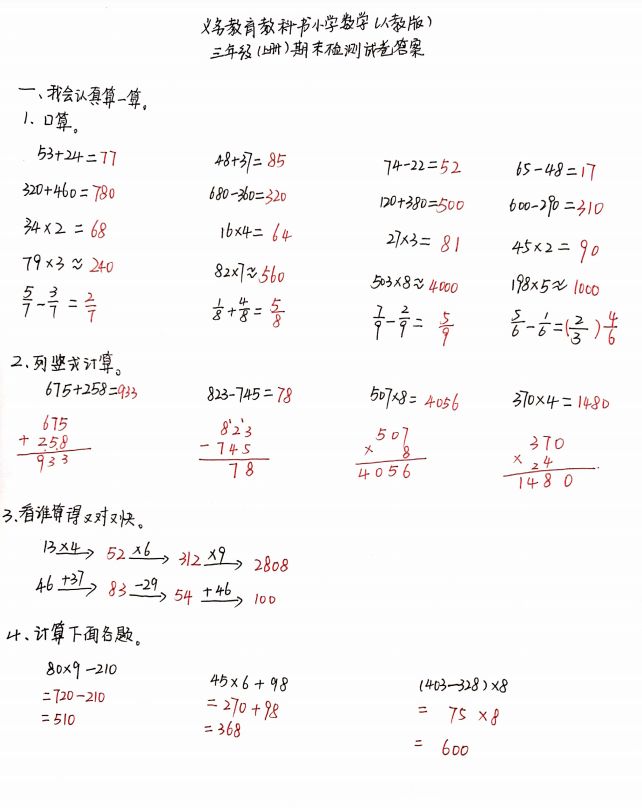 义务教育教科书小学数学(人教版)
三年级(上册)期末检测试卷答案
一、我会认真算一算。
1、口算。
53+24=77 48+37=85 74-22=52 65-48=17
320+460=780 680-360=320 120+380=500 600-290=310
34×2=68 16×4=64 27×3=81 45×2=90
79×3≈240 82×7≈560 503×8≈4000 198×5≈1000
5/7-3/7=2/7 1/8+4/8=5/8 7/9-2/9=5/9 5/6-1/6=(2/3)4/6
2、列竖式计算。
675+258=933 823-745=78 507×8=4056 370×4=1480
675 823 507 370
+258 -745 ×8 ×24
933 78 4056 1480
3、看谁算得又对又快。
13 ×4→ 52 ×6→ 312 ×9→ 2808
46 +37→ 83 -29→ 54 +46→ 100
4、计算下面各题。
80×9-210 45×6+98 (403-328)×8
=720-210 =270+98 =75×8
=510 =368 =600